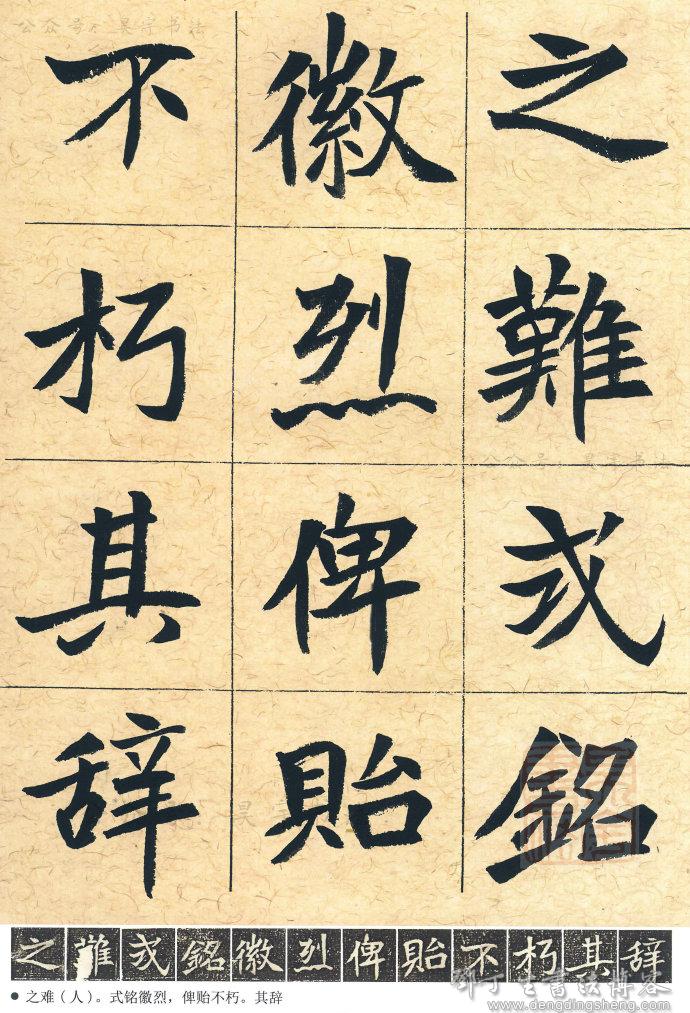 之難式銘
徽烈俾貽
不朽其辞
之難式銘徽烈俾貽不朽其辞
● 之难（人）。式铭徽烈，俾贻不朽。其辞
邓丁生书法博客
www.dengdingsheng.com